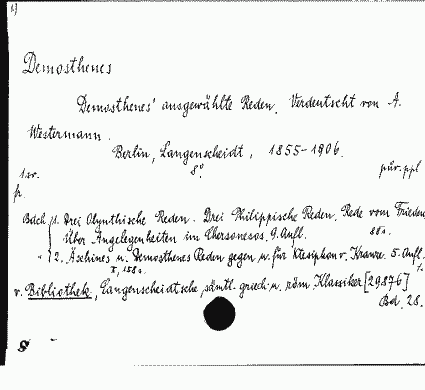 Demosthenes
Demosthenes' ausgewählte Reden. Verdeutscht von A.
Westermann.
Berlin, Langenscheidt, 1855-1906.
8°
Bdch 1. Drei Olynthische Reden. Drei Philippische Reden, Rede vom Frieden
Über Angelegenheiten im Chersonesos. 9. Aufl. 88 s.
" 2. Äschines u. Demosthenes Reden gegen u. für Ktesiphon v. Kranze. 5. Aufl.
v. Bibliothek, Langenscheidtsche, sämtl. griech. u. röm. Klassiker [29876]
Bd. 28.